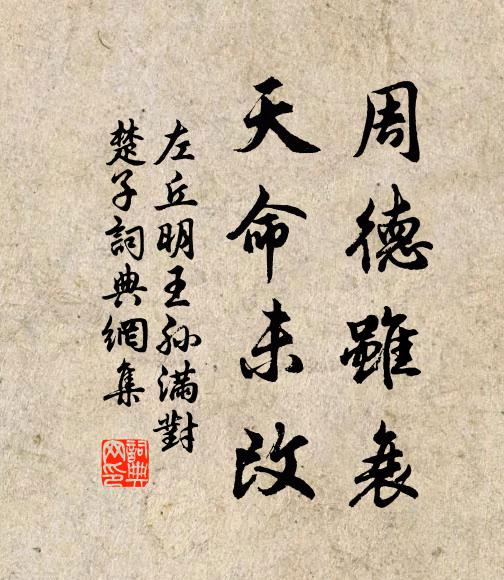 周德雖衰
天命未改
左丘明王孙滿對
楚子詞典網集
詞典網印